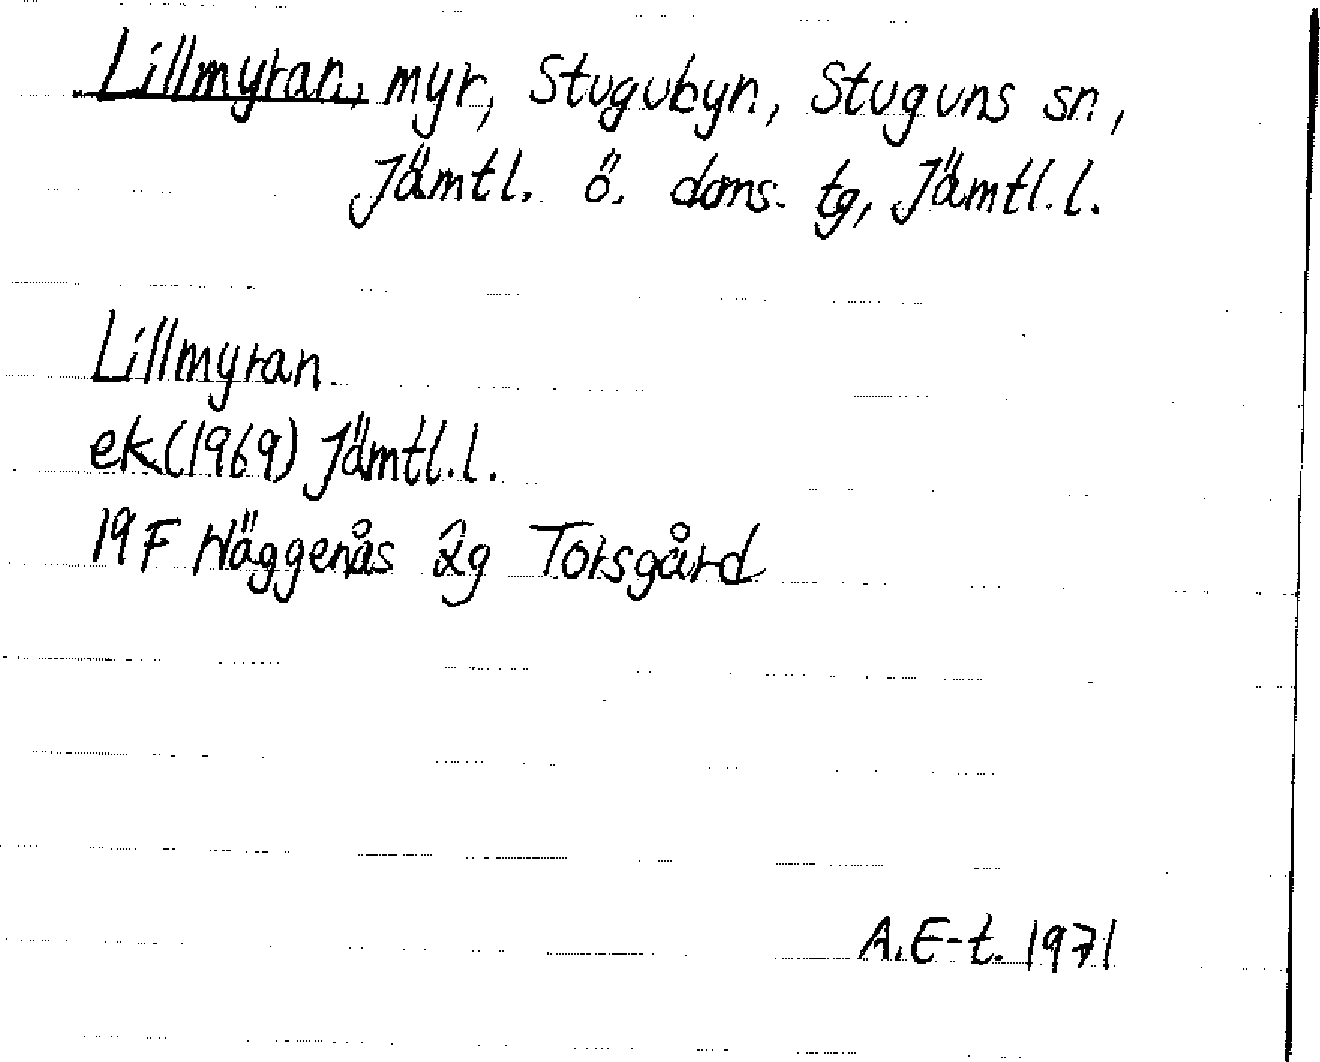 Lillmyran, myr, Stugubyn, Stuguns sn,
Jämtl. ö. doms. tg, Jämtl. l.
Lillmyran
ek (1969) Jämtl. l.
19 F Häggenås 2g Torsgård
A. E-t. 1971